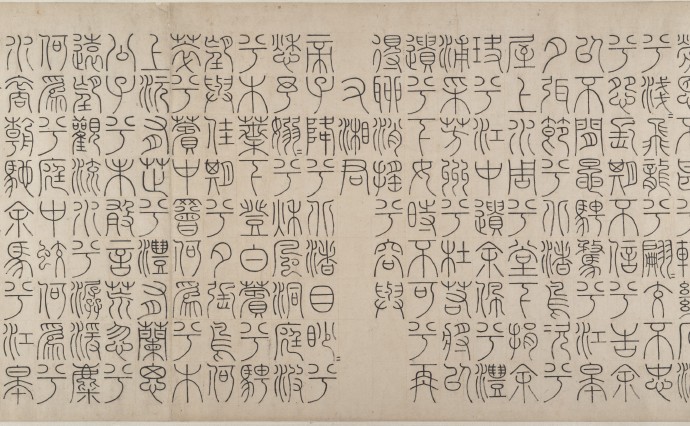 勞恩不甚兮輕絕石瀨
兮淺〻飛龍兮翩〻交不忠
兮怨長期不信兮告余
以不閒鼂騁騖兮江皋
夕弭節兮北渚鳥次兮
屋上水周兮堂下捐余
玦兮江中遺余佩兮醴
浦采芳洲兮杜若將以
遺兮下女時不可兮再
得聊逍遙兮容與
右湘君
帝子降兮北渚目眇〻兮
愁予嫋〻兮秋風洞庭波
兮木葉下登白薠兮騁
望與佳期兮夕張鳥何
萃兮薠中罾何為兮木
上沅有芷兮醴有蘭思
公子兮未敢言荒忽兮
遠望觀流水兮潺湲麋
何為兮庭中蛟何為兮
水裔朝馳余馬兮江皋